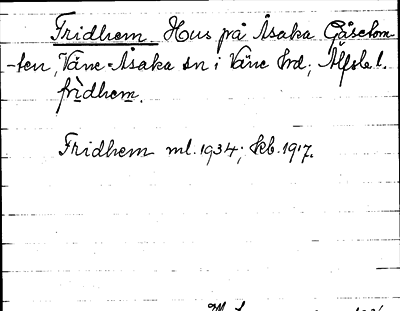 Fridhem Hus på Åsaka Gåsetom
-ten, Väne-Åsaka sn i Väne hrd; Älfsb. l.
frìdhem.
Fridhem ml. 1934; kb. 1917.